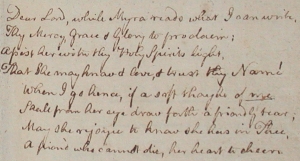 Dear Lord, while Myra reads what I can write
Thy Mercy, Grace & Glory to proclaim;
Assist her with thy Holy Spirits light,
That She may know & love, & trust thy Name!
When I go hence, if a soft thought of me
Shall from her eye draw forth a friendly tear;
May She rejoyce to know she has in Thee,
A friend who cannot die, her heart to cheer.